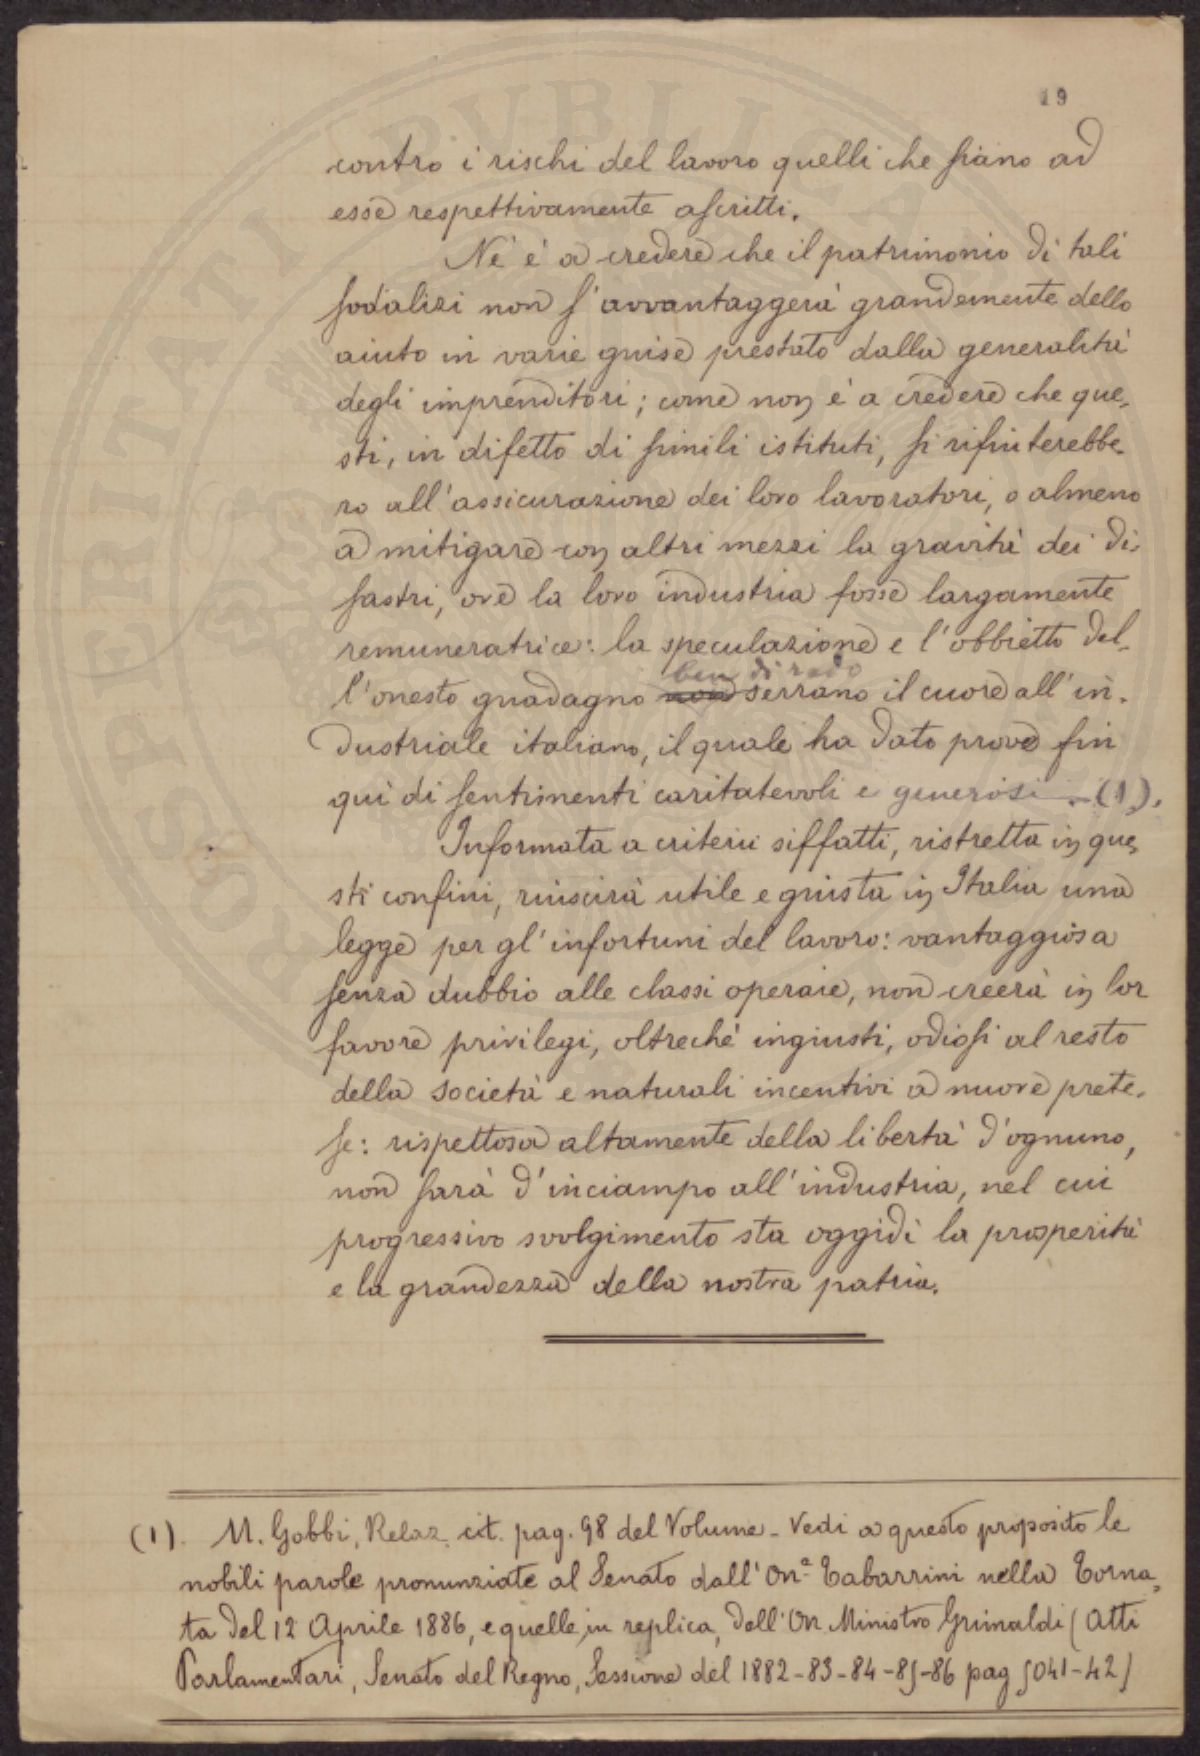 19
contro i rischi del lavoro quelli che siano ad
esse respettivamente ascritti.
Nè è a credere che il patrimonio di tali
sodalizi non s'avvantaggerà grandemente dello
aiuto in varie guise prestato dalla generalità
degli imprenditori; come non è a credere che que-
sti, in difetto di simili istituti, si rifiuterebbe-
ro all'assicurazione dei loro lavoratori, o almeno
a mitigare con altri mezzi la gravità dei di-
sastri, ove la loro industria fosse largamente
remuneratrice: la speculazione e l'obbietto del-
ben di rado
l'onesto guadagno non serrano il cuore all'in-
dustriale italiano, il quale ha dato prove fin
qui di sentimenti caritatevoli e generosi. (1).
Informata a criterii siffatti, ristretta in que-
sti confini, riuscirà utile e giusta in Italia una
legge per gl'infortuni del lavoro: vantaggiosa
senza dubbio alle classi operaie, non creerà in lor
favore privilegi, oltrechè ingiusti, odiosi al resto
della società e naturali incentivi a nuove prete-
se: rispettosa altamente della libertà d'ognuno,
non sarà d'inciampo all'industria, nel cui
progressivo svolgimento sta oggidì la prosperità
e la grandezza della nostra patria.
(1). M. Gobbi, Relaz. cit. pag. 98 del Volume - Vedi a questo proposito le
nobili parole pronunziate al Senato dall'On.e Tabarrini nella Torna-
ta del 12 Aprile 1886, e quelle, in replica, dell'On Ministro Grimaldi (Atti
Parlamentari, Senato del Regno, Sessione del 1882-83-84-85-86 pag 5041-42)
PROSPERITATI PVBLICAE